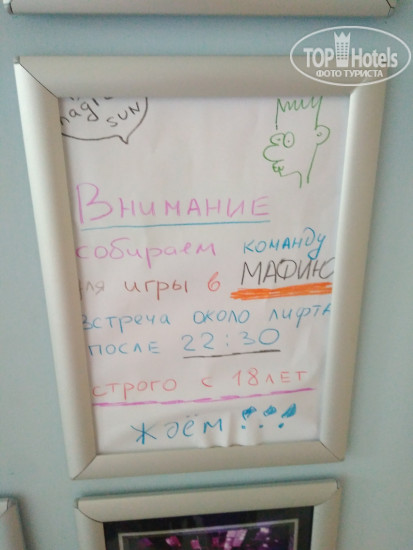 TOP Hotels
ФОТО ТУРИСТА
magic
SUN
ВНИМАНИЕ
собираем команду
ля игры в МАФИЮ
встреча около лифта
после 22:30
строго с 18 лет
ждём !!!